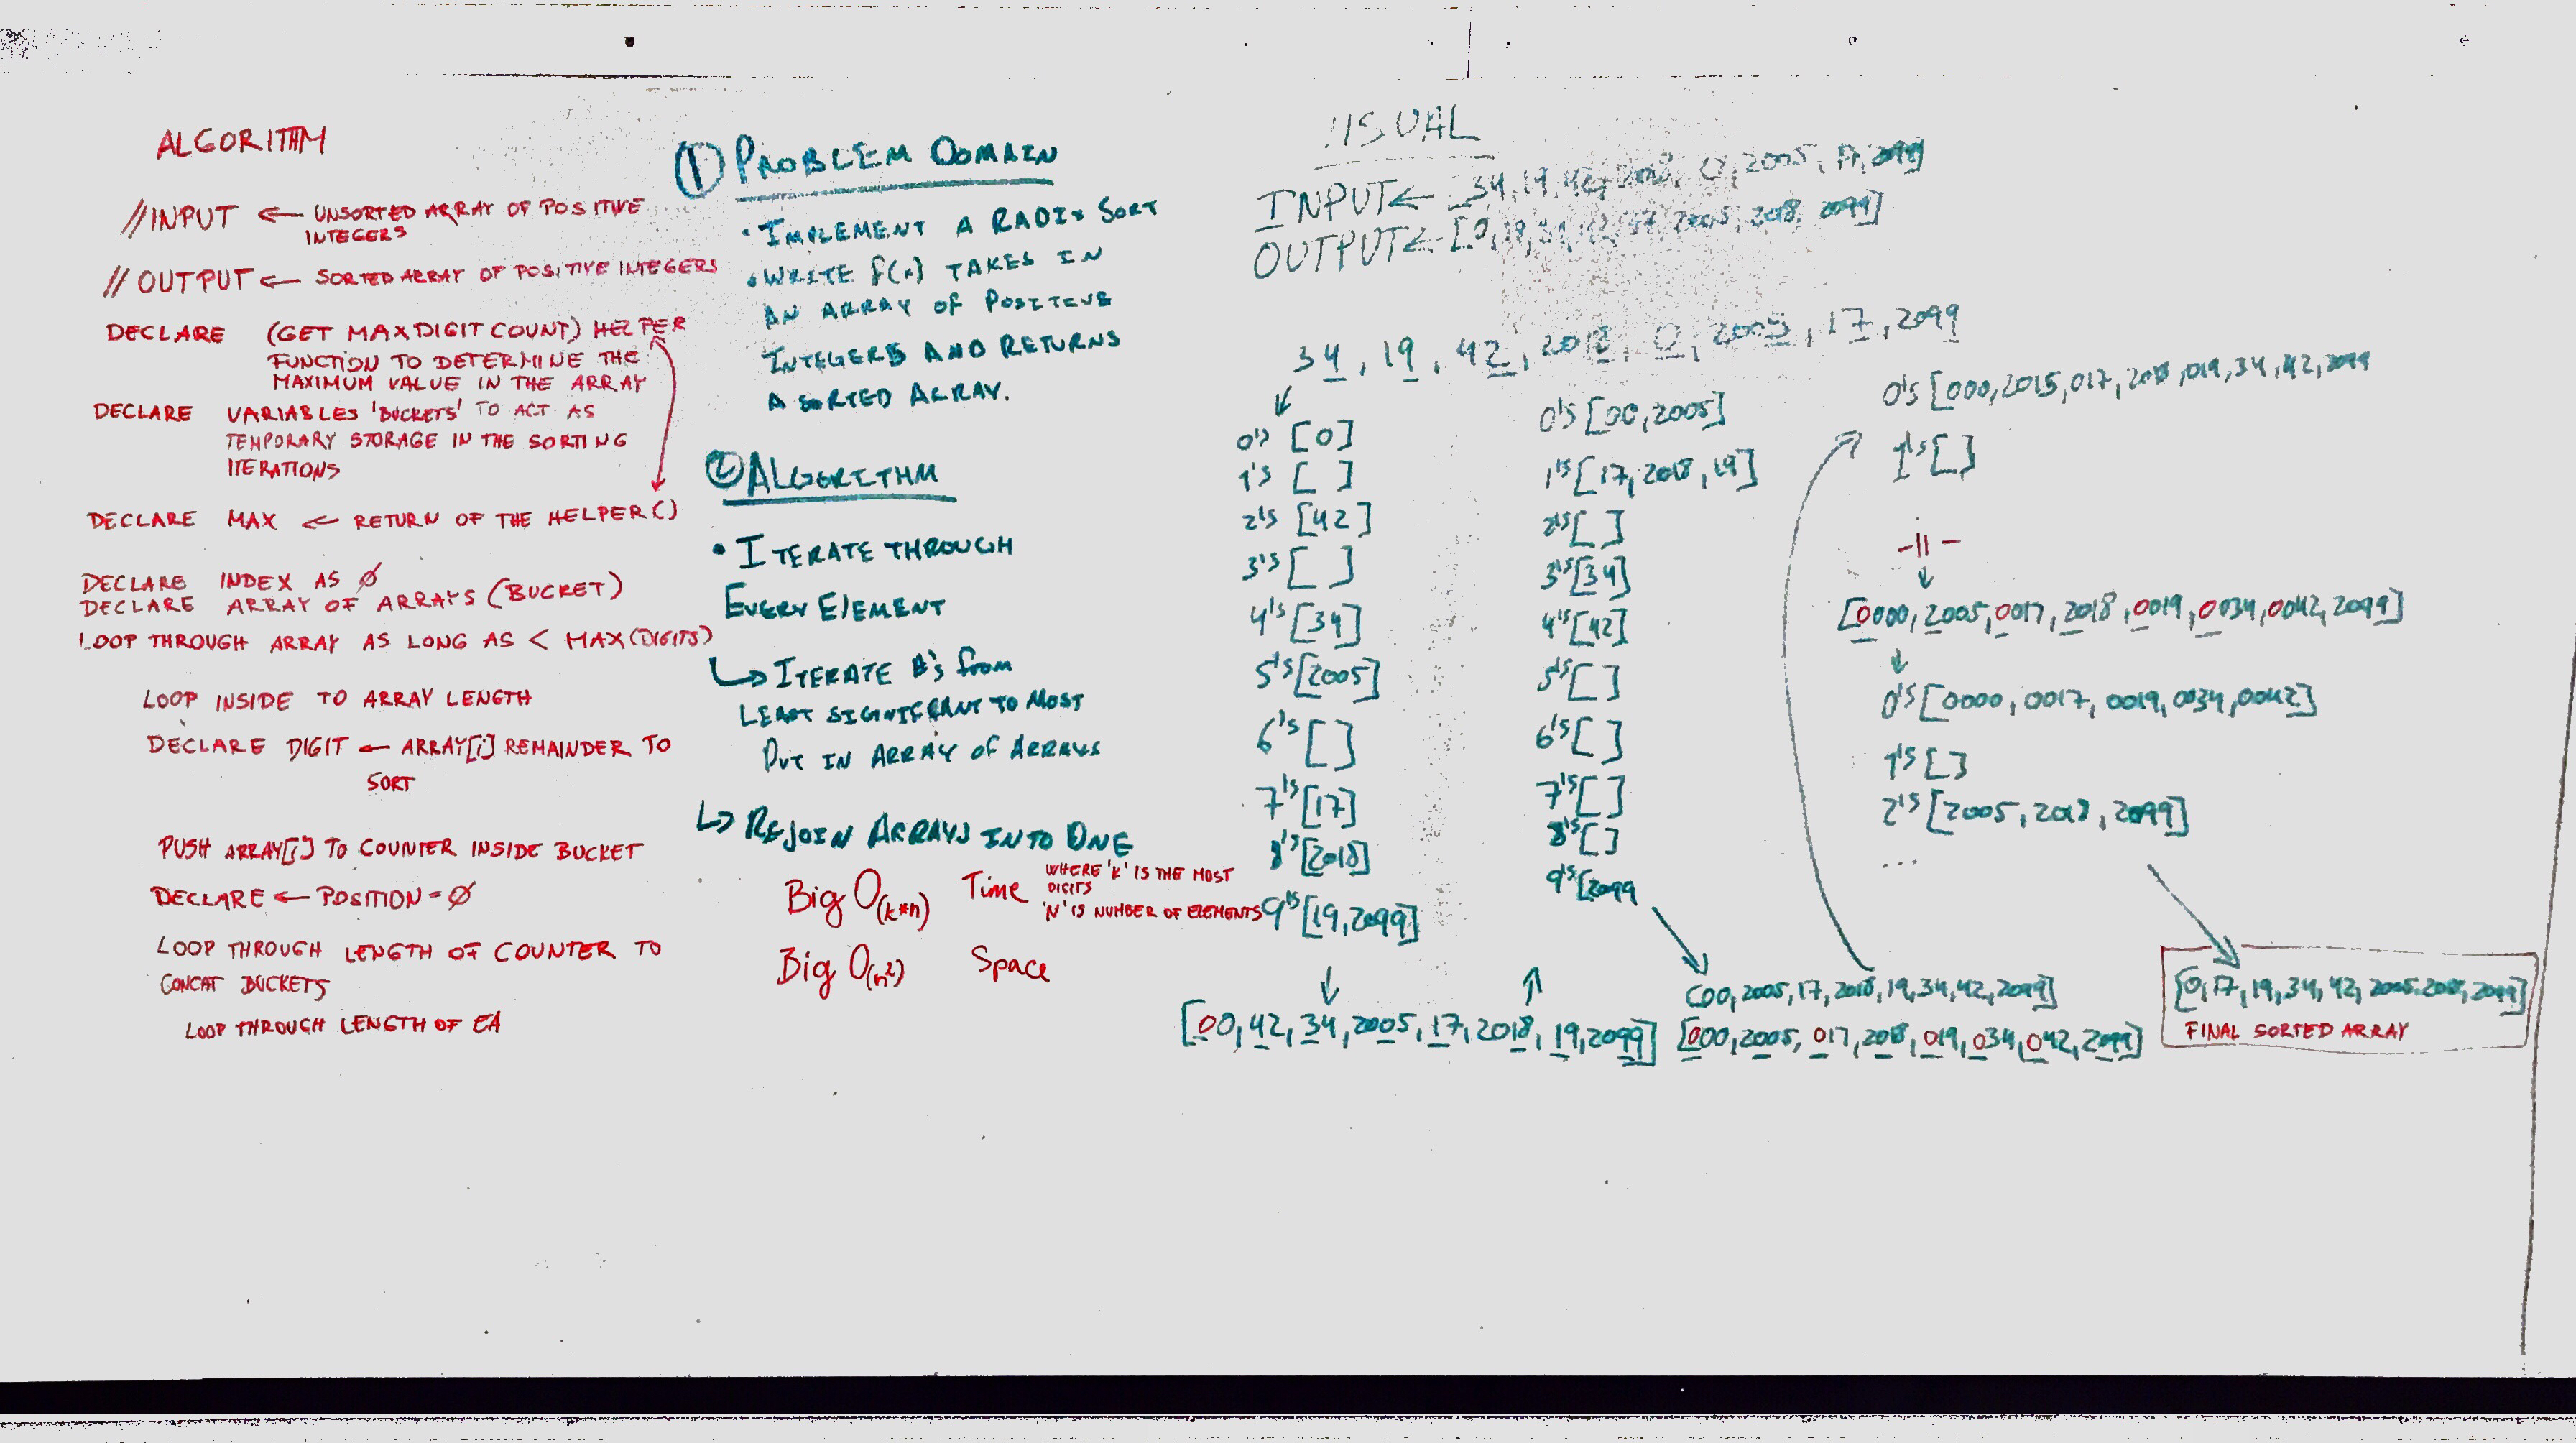 ALGORITHM
//INPUT ← UNSORTED ARRAY OF POSITIVE
INTEGERS
//OUTPUT ← SORTED ARRAY OF POSITIVE INTEGERS
DECLARE (GET MAX DIGIT COUNT) HELPER
FUNCTION TO DETERMINE THE
MAXIMUM VALUE IN THE ARRAY
DECLARE VARIABLES 'BUCKETS' TO ACT AS
TEMPORARY STORAGE IN THE SORTING
ITERATIONS
DECLARE MAX ← RETURN OF THE HELPER()
DECLARE INDEX AS Ø
DECLARE ARRAY OF ARRAYS (BUCKET)
LOOP THROUGH ARRAY AS LONG AS < MAX(DIGITS)
LOOP INSIDE TO ARRAY LENGTH
DECLARE DIGIT ← ARRAY[i] REMAINDER TO
SORT
PUSH ARRAY[i] TO COUNTER INSIDE BUCKET
DECLARE ← POSITION = Ø
LOOP THROUGH LENGTH OF COUNTER TO
CONCAT BUCKETS
LOOP THROUGH LENGTH OF EA
① PROBLEM DOMAIN
• IMPLEMENT A RADIX SORT
• WRITE f(x) TAKES IN
AN ARRAY OF POSITIVE
INTEGERS AND RETURNS
A SORTED ARRAY.
② ALGORITHM
• ITERATE THROUGH
EVERY ELEMENT
↳ ITERATE #'s from
LEAST SIGNIFICANT TO MOST
PUT IN ARRAY OF ARRAYS
↳ REJOIN ARRAYS INTO ONE
Big O(k*n) Time WHERE 'K' IS THE MOST
DIGITS
'N' IS NUMBER OF ELEMENTS
Big O(n²) Space
VISUAL
INPUT ← 34, 19, 42, 2018, 0, 2005, 17, 2099]
OUTPUT ← [0, 19, 34, 42, 17, 2005, 2018, 2099]
34, 19, 42, 2018, 0, 2005, 17, 2099
0's [0]
1's [ ]
2's [42]
3's [ ]
4's [34]
5's [2005]
6's [ ]
7's [17]
8's [2018]
9's [19, 2099]
[00, 42, 34, 2005, 17, 2018, 19, 2099]
0's [00, 2005]
1's [17, 2018, 19]
2's [ ]
3's [34]
4's [42]
5's [ ]
6's [ ]
7's [ ]
8's [ ]
9's [2099
[00, 2005, 17, 2018, 19, 34, 42, 2099]
[000, 2005, 017, 2018, 019, 034, 042, 2099]
0's [000, 2015, 017, 2018, 019, 34, 42, 2099
1's [ ]
-||-
[0000, 2005, 0017, 2018, 0019, 0034, 0042, 2099]
0's [0000, 0017, 0019, 0034, 0042]
1's [ ]
2's [2005, 2018, 2099]
...
[0, 17, 19, 34, 42, 2005, 2018, 2099]
FINAL SORTED ARRAY